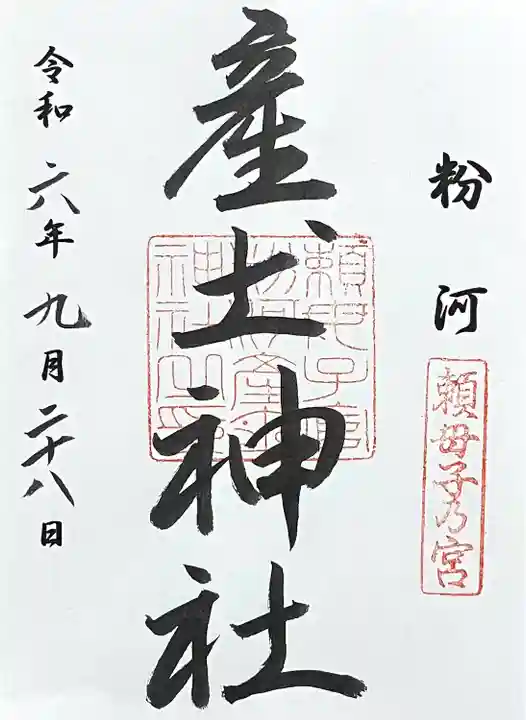 粉河
頼母子乃宮
産土神社
頼母子宮
粉河産土
神社之印
令和六年九月二十八日